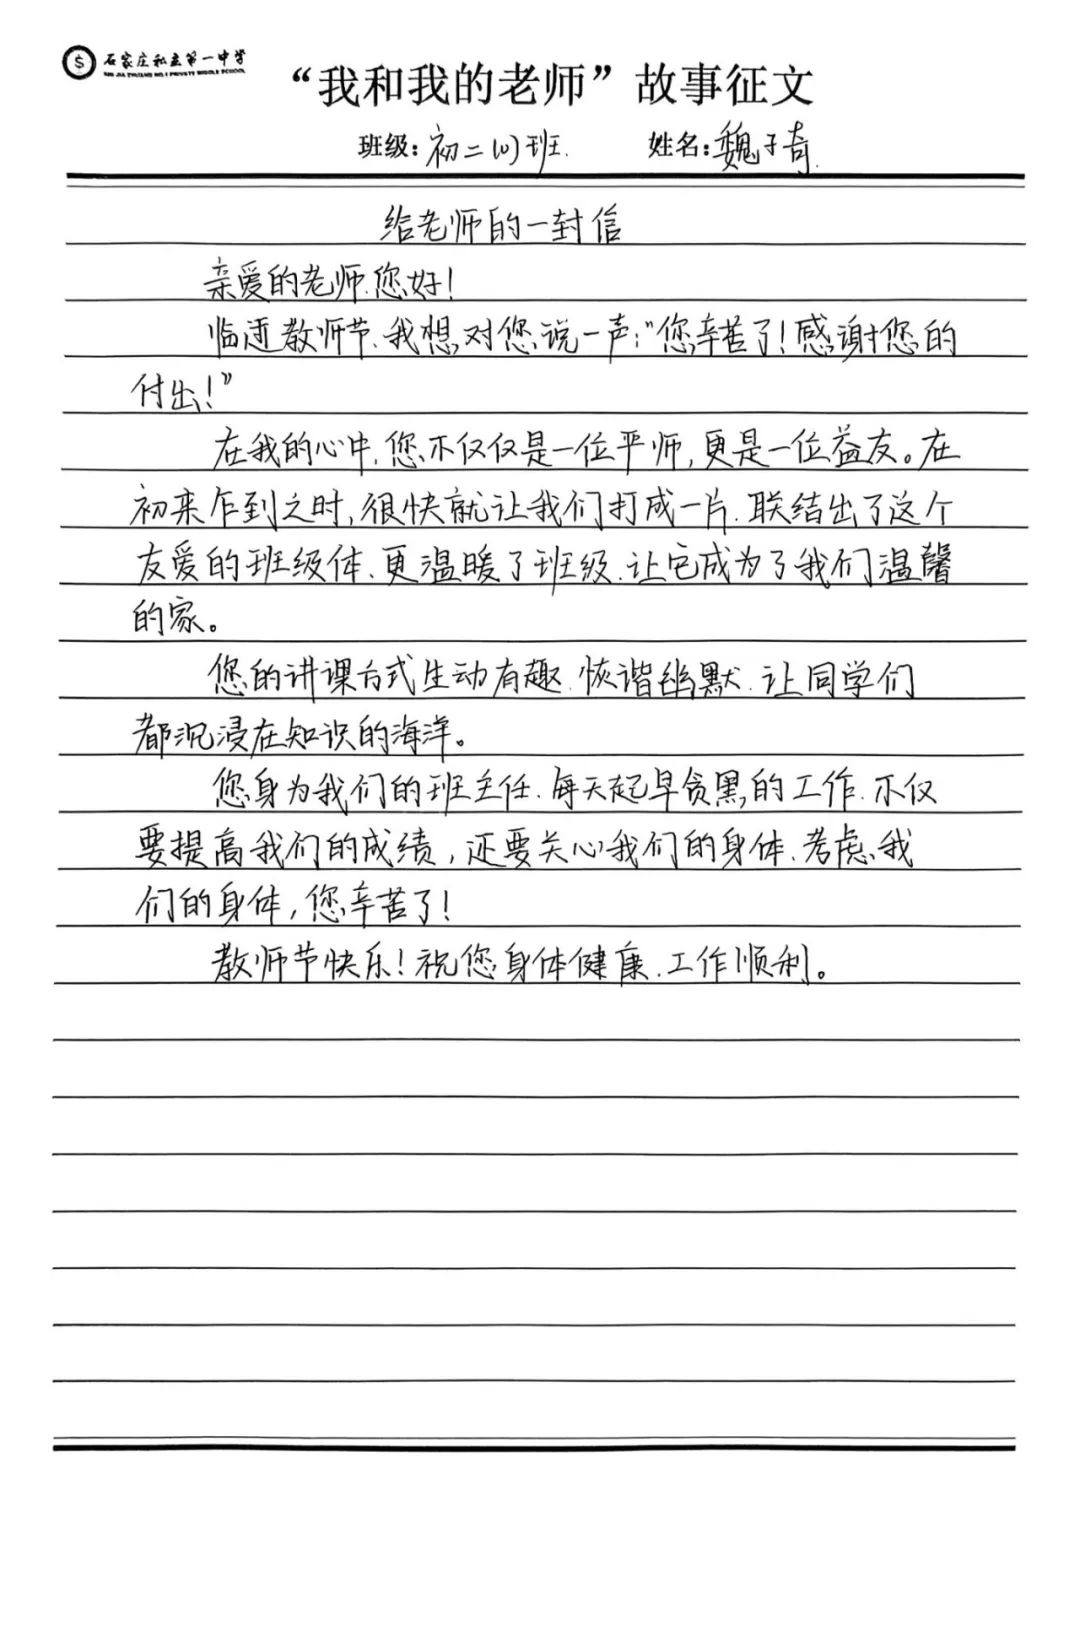 石家庄私立第一中学
SHI JIA ZHUANG NO.1 PRIVATE MIDDLE SCHOOL
“我和我的老师”故事征文
班级:初二(1)班. 姓名:魏子奇.
给老师的一封信
亲爱的老师.您好!
临近教师节.我想对您说一声:“您辛苦了!感谢您的
付出!”
在我的心中.您不仅仅是一位严师,更是一位益友。在
初来乍到之时,很快就让我们打成一片.联结出了这个
友爱的班级体.更温暖了班级.让它成为了我们温馨
的家。
您的讲课方式生动有趣.恢谐幽默.让同学们
都沉浸在知识的海洋。
您身为我们的班主任.每天起早贪黑的工作.不仅
要提高我们的成绩,还要关心我们的身体.考虑我
们的身体,您辛苦了!
教师节快乐!祝您身体健康.工作顺利。